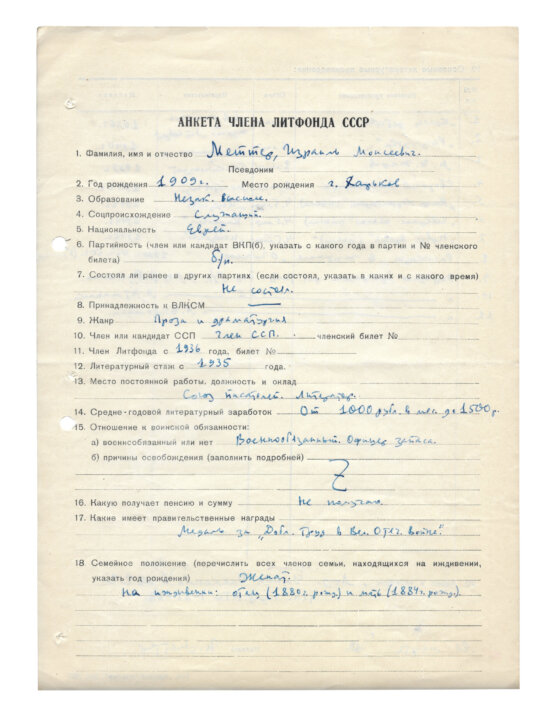 АНКЕТА ЧЛЕНА ЛИТФОНДА СССР
1. Фамилия, имя и отчество Меттер, Израиль Моисеевич.
Псевдоним
2. Год рождения 1909 г. Место рождения г. Харьков
3. Образование Незак. высшее.
4. Соцпроисхождение Служащий.
5. Национальность Еврей.
6. Партийность (член или кандидат ВКП(б), указать с какого года в партии и № членского
билета) б/п.
7. Состоял ли ранее в других партиях (если состоял, указать в каких и с какого время)
Не состоял.
8. Принадлежность к ВЛКСМ —
9. Жанр Проза и драматургия
10. Член или кандидат ССП Член ССП. членский билет №
11. Член Литфонда с 1936 года, билет №
12. Литературный стаж с 1935 года.
13. Место постоянной работы, должность и оклад
Союз писателей. Литератор.
14. Средне-годовой литературный заработок От 1000 руб. в мес до 1500 р.
15. Отношение к воинской обязанности:
а) военнообязанный или нет Военнообязанный. Офицер запаса.
б) причины освобождения (заполнить подробней)
16. Какую получает пенсию и сумму Не получаю.
17. Какие имеет правительственные награды
Медаль за „Добл. труд в Вел. Отеч. войне".
18 Семейное положение (перечислить всех членов семьи, находящихся на иждивении,
указать год рождения) Женат.
На иждивении: отец (1880 г. рожд) и мать (1884 г. рожд).